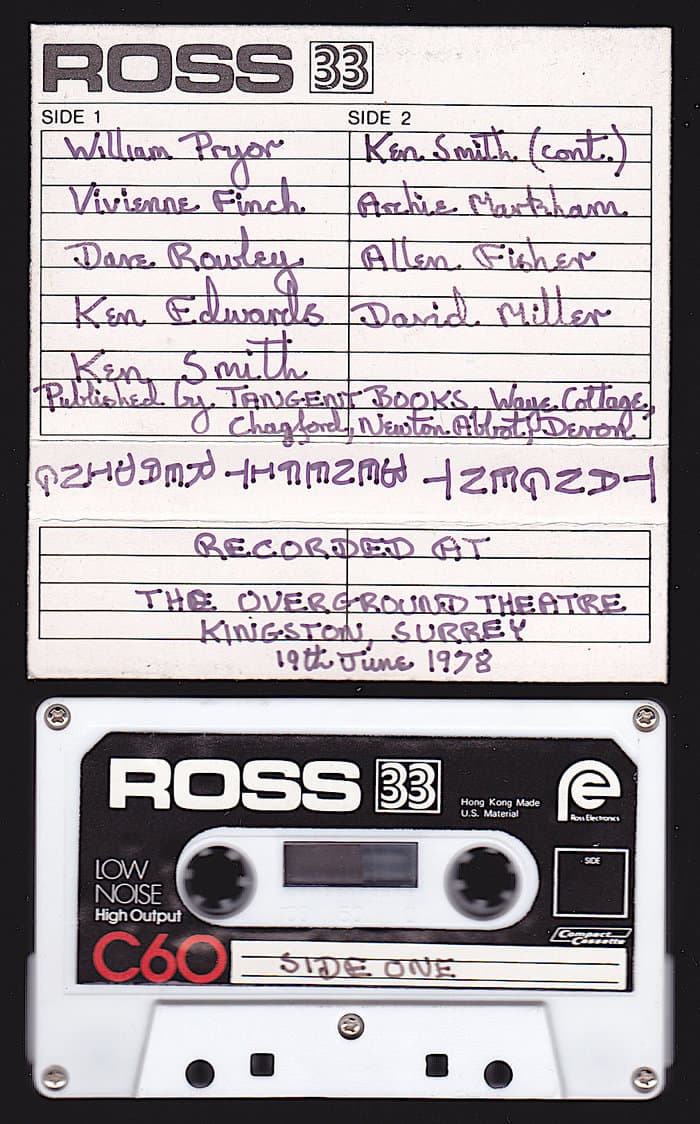 ROSS 33
SIDE 1 SIDE 2
William Pryor Ken Smith (cont.)
Vivienne Finch Archie Markham
Dave Rowley Allen Fisher
Ken Edwards David Miller
Ken Smith
Published by TANGENT BOOKS, Waye Cottage,
Chagford, Newton Abbot, Devon
TANGENT BENEFIT READING
RECORDED AT
THE OVERGROUND THEATRE
KINGSTON, SURREY
19th June 1978
ROSS 33
Hong Kong Made
U.S. Material
Ross Electronics
LOW
NOISE
High Output
SIDE
Compact
Cassette
C60
SIDE ONE